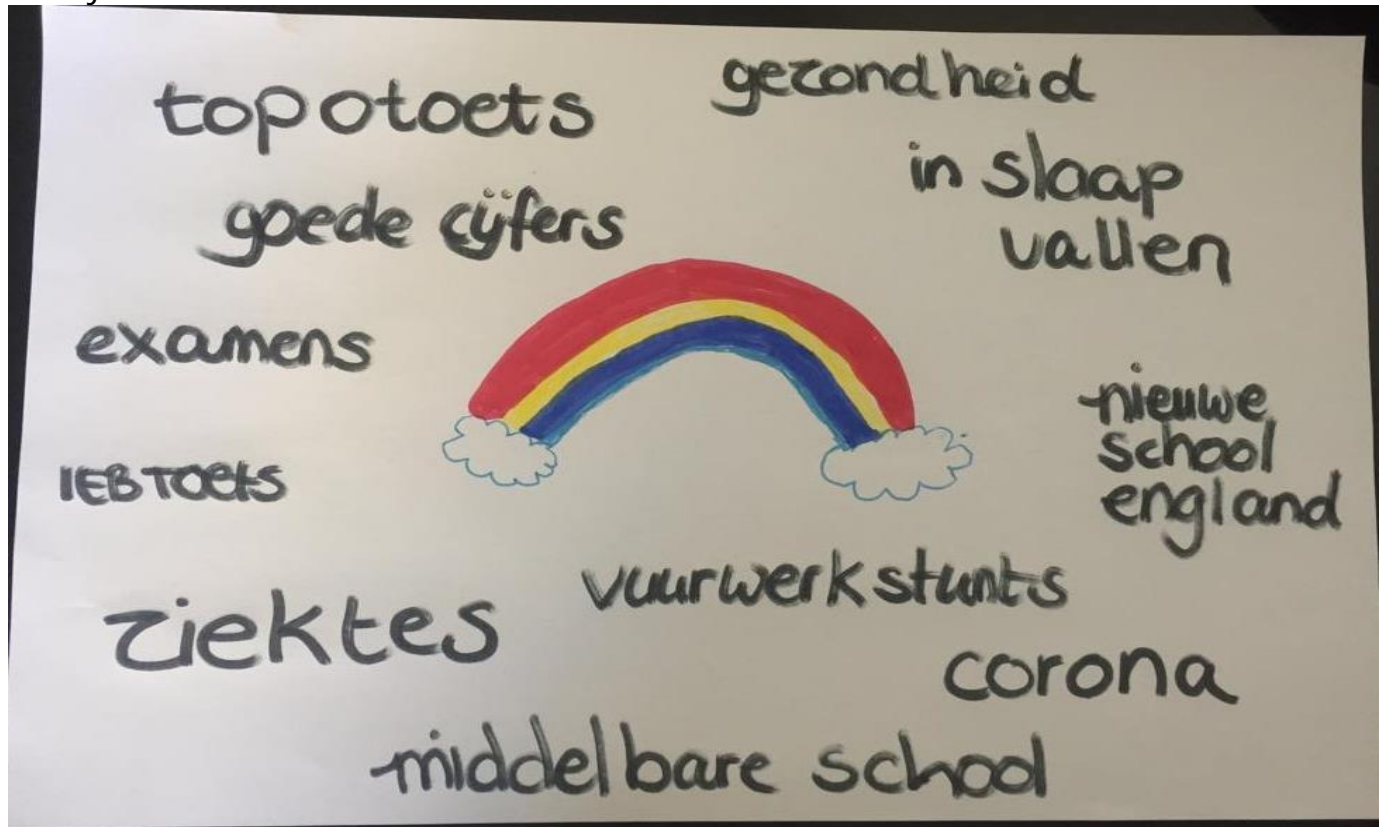 topotoets
gezondheid
goede cijfers
in slaap
vallen
examens
nieuwe
school
england
IEBTOETS
vuurwerkstunts
ziektes
corona
middelbare school